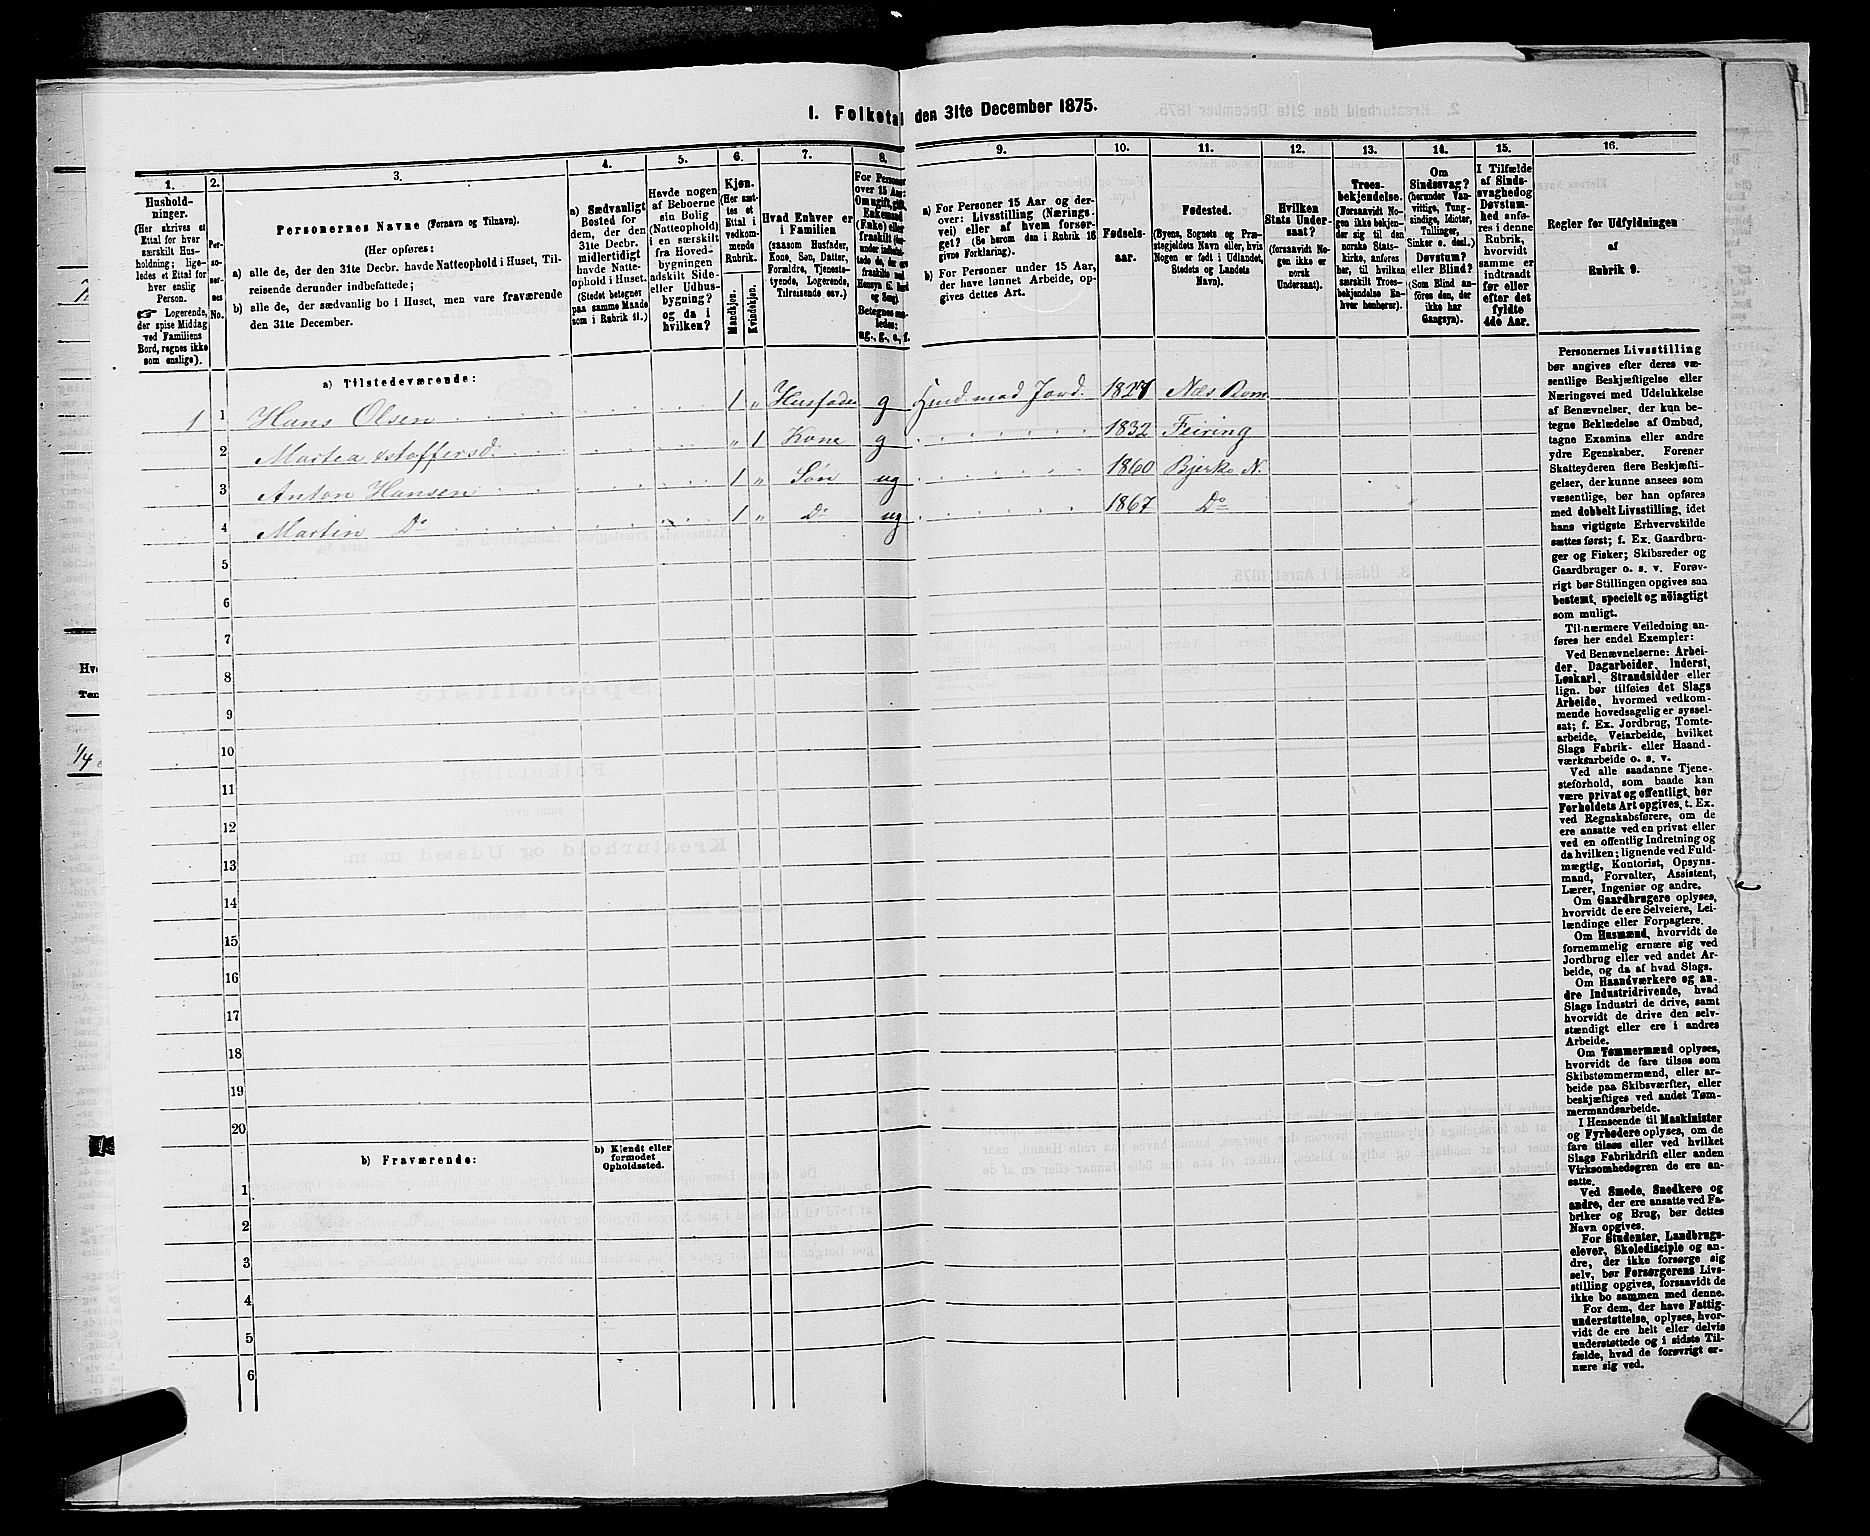 I. Folketal den 31te December 1875.
1.
Hushold-
ninger.
(Her skrives et
Ettal for hver
særskilt Hus-
holdning; lige-
ledes et Ettal for
hver enslig
Person.
☞ Logerende,
der spise Middag
ved Familiens
Bord, regnes ikke
som enslige).
2.
Per-
so-
ner-
nes
No.
3.
Personernes Navne (Fornavn og Tilnavn).
(Her opføres:
a) alle de, der den 31te Decbr. havde Natteophold i Huset, Til-
reisende derunder indbefattede;
b) alle de, der sædvanlig bo i Huset, men vare fraværende
den 31te December.
4.
a) Sædvanligt
Bosted for
dem, der den
31te Decbr.
midlertidigt
havde Natte-
ophold i Huset.
(Stedet betegnet
paa samme Maade
som i Rubrik 11.)
5.
Havde nogen
af Beboerne
sin Bolig
(Natteophold)
i en særskilt
fra Hoved-
bygningen
adskilt Side-
eller Udhus-
bygning?
og da i
hvilken?
6.
Kjøn.
(Her sæt-
tes et
Ettal i
vedkom-
mende
Rubrik.
Mandkjøn.
Kvindekjøn.
7.
Hvad Enhver er
i Familien
(saasom Husfader,
Kone, Søn, Datter,
Forældre, Tjeneste-
tyende, Logerende,
Tilreisende osv.)
8.
For Personer
over 15 Aar:
Om ugift, gift,
Enkemand
(Enke) eller
fraskilt
Betegnes saa-
ledes:
ug., g., e., f.
9.
a) For Personer 15 Aar og der-
over: Livsstilling (Nærings-
vei) eller af hvem forsør-
get? (Se herom den i Rubrik 16
givne Forklaring).
b) For Personer under 15 Aar,
der have lønnet Arbeide, op-
gives dettes Art.
10.
Fødsels-
aar.
11.
Fødested.
(Byens, Sognets og Præ-
stegjeldets Navn eller, hvis
Nogen er født i Udlandet,
Stedets og Landets
Navn).
12.
Hvilken
Stats Under-
saat?
(forsaavidt No-
gen ikke er
norsk
Undersaat).
13.
Troes-
bekjendelse.
(Forsaavidt No-
gen ikke bekjen-
der sig til den
norske Stats-
kirke, anføres
her, til hvilken
særskilt Troes-
bekjendelse En-
hver henhører).
14.
Om
Sindssvag?
(herunder Van-
vittige, Tung-
sindige, Idioter,
Tullinger,
Sinker o. desl.)
Døvstum?
eller Blind?
(Som Blind an-
føres den, der
ikke har
Gangsyn).
15.
I Tilfælde
af Sinds-
svaghed og
Døvstum-
hed anfø-
res i denne
Rubrik,
hvorvidt
samme er
indtraadt
før eller
efter det
fyldte
4de Aar.
16.
Regler for Udfyldningen
af
Rubrik 9.
a) Tilstedeværende:
1 1 Hans Olsen 1 " Husfader g Husd. med Jord. 1827 Næs Rom.
2 Martea " 1 Kone g 1832 Feiring
3 Anton Hansen 1 " Søn ug 1860 Bjerke N.
4 Martin Do 1 " Do ug 1867 Do
5
6
7
8
9
10
11
12
13
14
15
16
17
18
19
20
b) Fraværende:
b) Kjendt eller
formodet
Opholdssted.
1
2
3
4
5
6
Personernes Livsstilling
bør angives efter deres væ-
sentlige Beskjæftigelse eller
Næringsvei med Udelukkelse
af Benævnelser, der kun be-
tegne Beklædelse af Ombud,
tagne Examina eller andre
ydre Egenskaber. Forener
Skatteyderen flere Beskjæfti-
gelser, der kunne ansees som
væsentlige, bør han opføres
med dobbelt Livsstilling, idet
hans vigtigste Erhvervskilde
sættes først; f. Ex. Gaardbru-
ger og Fisker; Skibsreder og
Gaardbruger o. s. v. Forøv-
rigt bør Stillingen opgives saa
bestemt, specielt og nöiagtigt
som muligt.
Til nærmere Veiledning an-
føres her endel Exempler:
Ved Benævnelserne: Arbei-
der, Dagarbeider, Inderst,
Løskarl, Strandsidder eller
lign. bør tilføies det Slags
Arbeide, hvormed vedkom-
mende hovedsagelig er syssel-
sat; f. Ex. Jordbrug, Tomte-
arbeide, Veiarbeide, hvilket
Slags Fabrik- eller Haand-
værksarbeide o. s. v.
Ved alle saadanne Tjene-
steforhold, som baade kan
være privat og offentligt, bør
Forholdets Art opgives, t. Ex.
ved Regnskabsførere, om de
ere ansatte ved en privat eller
ved en offentlig Indretning og
da hvilken; lignende ved Fuld-
mægtig, Kontorist, Opsyns-
mand, Forvalter, Assistent,
Lærer, Ingeniør og andre.
Om Gaardbrugere oplyses,
hvorvidt de ere Selveiere, Lei-
lændinge eller Forpagtere.
Om Husmænd, hvorvidt de
fornemmelig ernære sig ved
Jordbrug eller ved andet Ar-
beide, og da af hvad Slags.
Om Haandværkere og an-
dre Industridrivende, hvad
Slags Industri de drive, samt
hvorvidt de drive den selv-
stændigt eller ere i andres
Arbeide.
Om Tømmermænd oplyses,
hvorvidt de fare tilsøs som
Skibstømmermænd, eller ar-
beide paa Skibsværfter, eller
beskjæftiges ved andet Tøm-
mermandsarbeide.
I Henseende til Maskinister
og Fyrbødere oplyses, om de
fare tilsøs eller ved hvilket
Slags Fabrikdrift eller anden
Virksomhedsgren de ere an-
satte.
Ved Smede, Snedkere og
andre, der ere ansatte ved Fa-
briker og Brug, bør dettes
Navn opgives.
For Studenter, Landbrugs-
elever, Skoledisciple og an-
dre, der ikke forsørge sig
selv, bør Forsørgerens Livs-
stilling opgives, forsaavidt de
ikke bo sammen med denne.
For dem, der have Fattig-
understøttelse, oplyses, hvor-
vidt de ere helt eller delvis
understøttede og i sidste Til-
fælde, hvad de forøvrigt er-
nære sig ved.